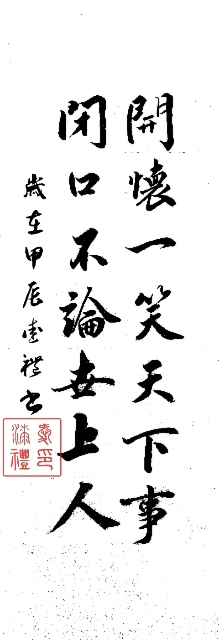 開懷一笑天下事
閉口不論世上人
歲在甲辰
禮書